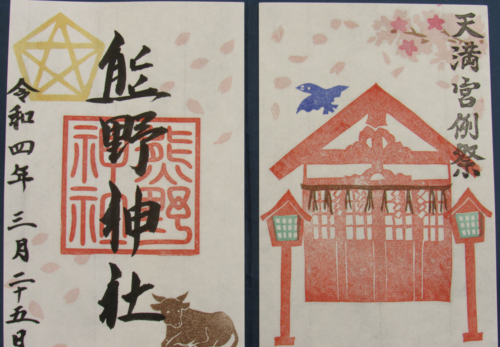 天満宮例祭
熊野神社
熊野神社
令和四年 三月二十五日